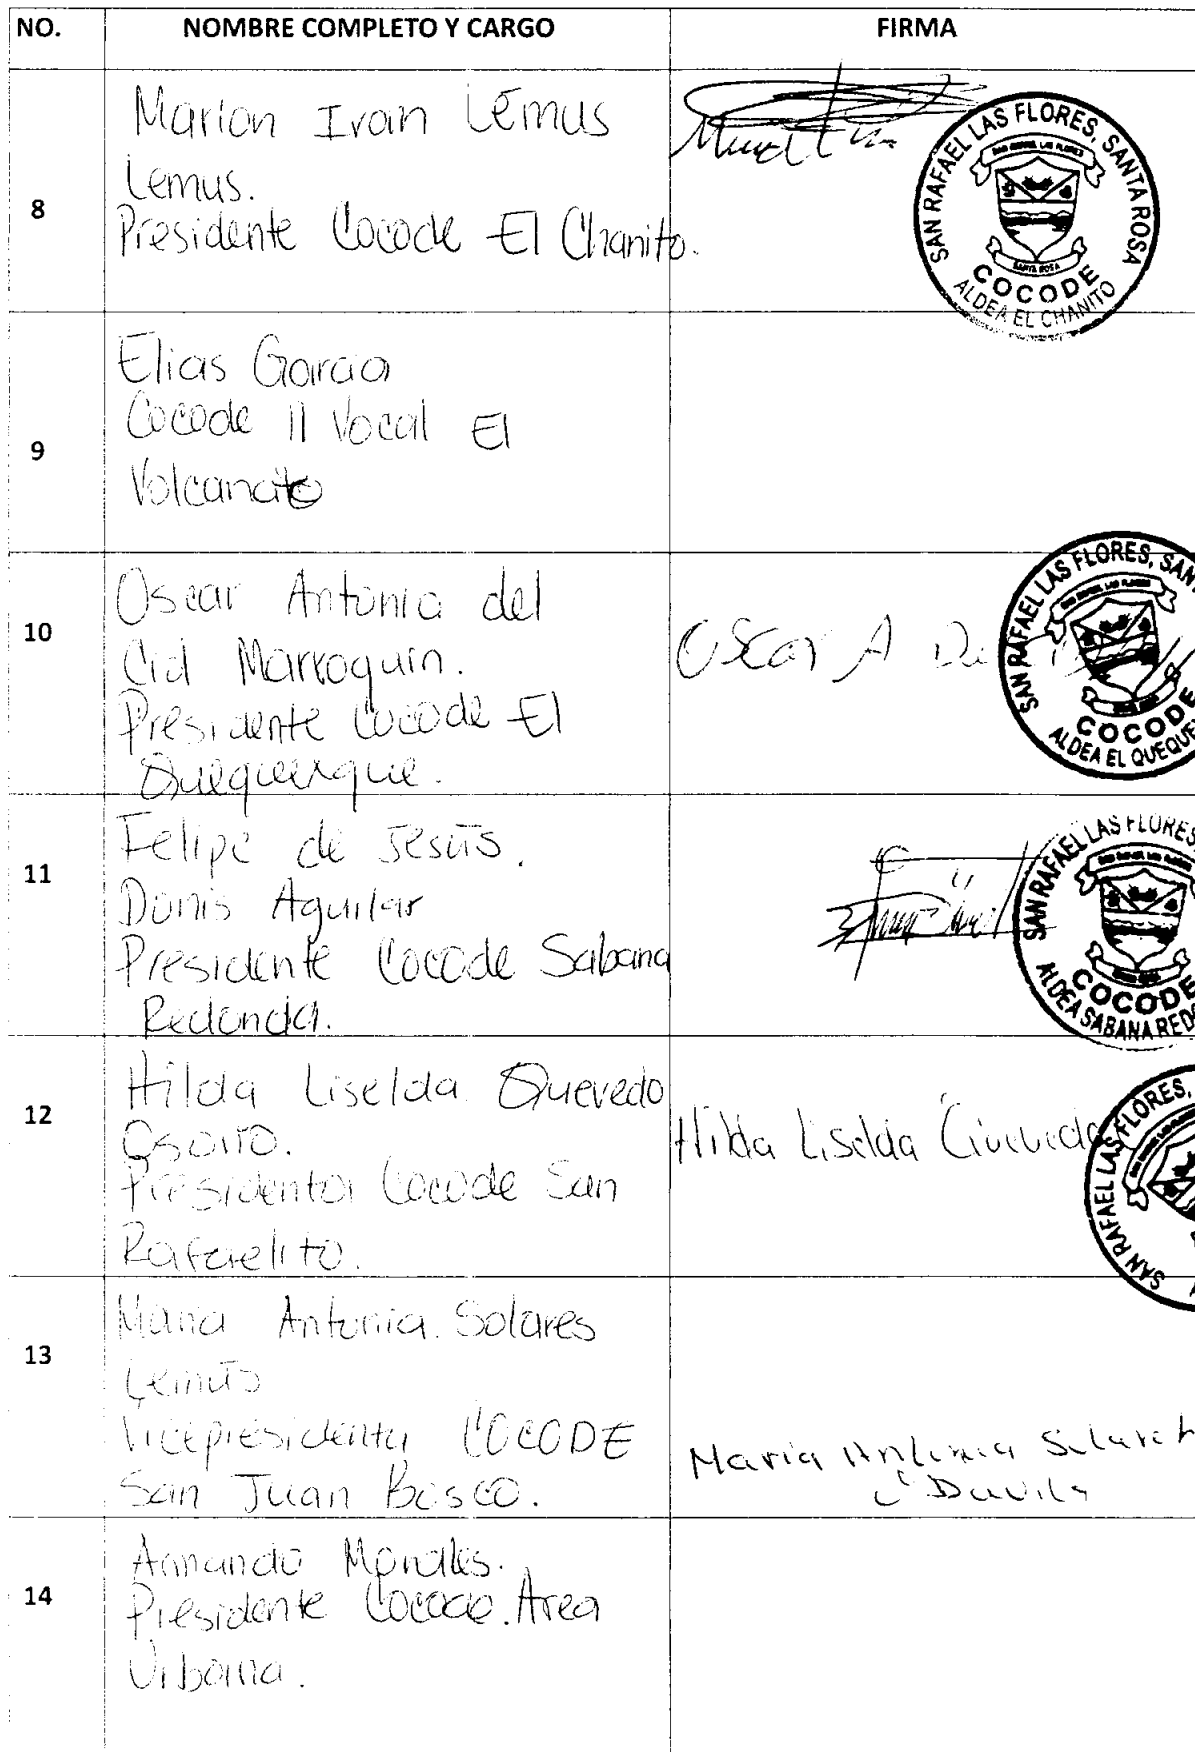 NO. NOMBRE COMPLETO Y CARGO FIRMA
8
Marion Ivan Lemus
Lemus.
Presidente Cocode El Chanito.
SAN RAFAEL LAS FLORES, SANTA ROSA
SAN RAFAEL LAS FLORES
SANTA ROSA
COCODE
ALDEA EL CHANITO
9
Elias Garcia
Cocode II Vocal El
Volcancito
10
Oscar Antonio del
Cid Marroquin.
Presidente Cocode El
Quequexque.
Oscar A De
SAN RAFAEL LAS FLORES, SAN
COCODE
ALDEA EL QUEQUE
11
Felipe de Jesús.
Donis Aguilar
Presidente Cocode Sabana
Redonda.
SAN RAFAEL LAS FLORES
COCODE
ALDEA SABANA REDO
12
Hilda Liselda Quevedo
Osorio.
Presidenta Cocode San
Rafaelito.
Hilda Liselda Quevedo
SAN RAFAEL LAS FLORES,
13
Maria Antonia Solares
Lemus
Vicepresidenta COCODE
San Juan Bosco.
Maria Antonia Solares L
Davila
14
Armando Morales.
Presidente Cocode. Area
Urbana.